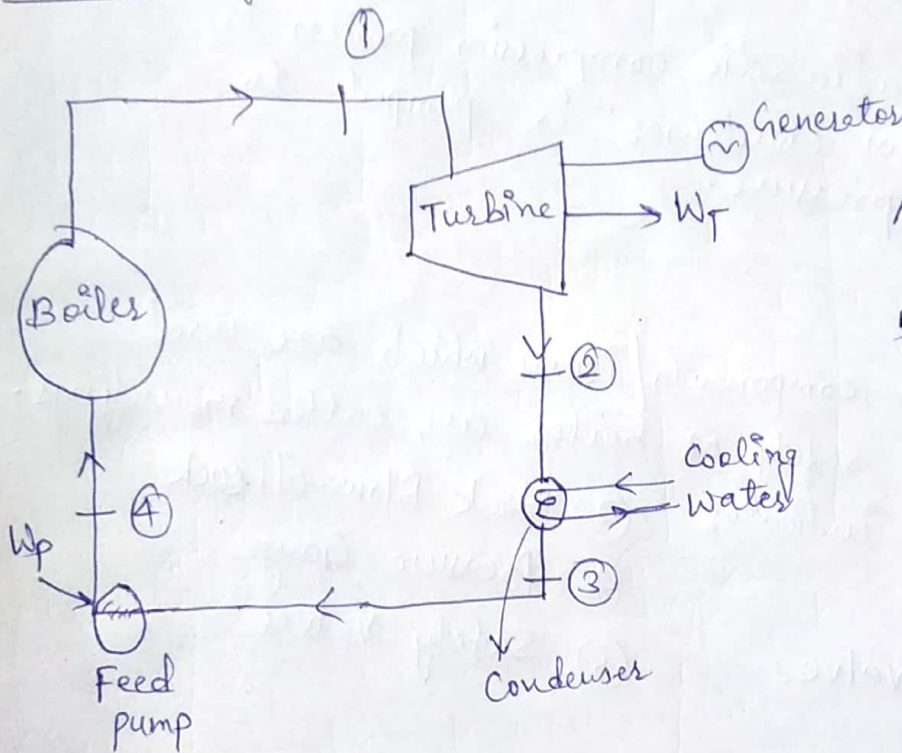 ①
Generator
Turbine
W_T
Boiler
②
Cooling
Water
④
W_P
③
Feed
pump
Condenser